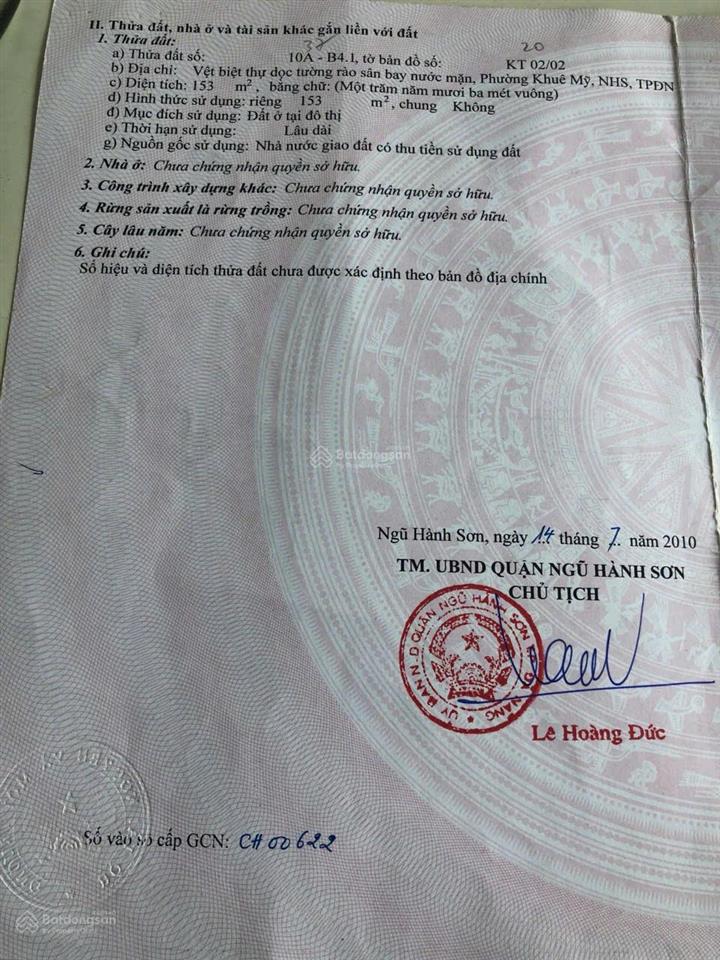 II. Thửa đất, nhà ở và tài sản khác gắn liền với đất
1. Thửa đất: 37 20
a) Thửa đất số: 10A - B4.1, tờ bản đồ số: KT 02/02
b) Địa chỉ: Vệt biệt thự dọc tường rào sân bay nước mặn, Phường Khuê Mỹ, NHS, TPĐN
c) Diện tích: 153 m², bằng chữ: (Một trăm năm mươi ba mét vuông)
d) Hình thức sử dụng: riêng 153 m², chung Không
đ) Mục đích sử dụng: Đất ở tại đô thị
e) Thời hạn sử dụng: Lâu dài
g) Nguồn gốc sử dụng: Nhà nước giao đất có thu tiền sử dụng đất
2. Nhà ở: Chưa chứng nhận quyền sở hữu.
3. Công trình xây dựng khác: Chưa chứng nhận quyền sở hữu.
4. Rừng sản xuất là rừng trồng: Chưa chứng nhận quyền sở hữu.
5. Cây lâu năm: Chưa chứng nhận quyền sở hữu.
6. Ghi chú:
Số hiệu và diện tích thửa đất chưa được xác định theo bản đồ địa chính
Batdongsan
Ngũ Hành Sơn, ngày 14 tháng 7 năm 2010
TM. UBND QUẬN NGŨ HÀNH SƠN
CHỦ TỊCH
ỦY BAN N.D QUẬN NGŨ HÀNH SƠN
Lê Hoàng Đức
Số vào sổ cấp GCN: CH 00622
Batdongsan